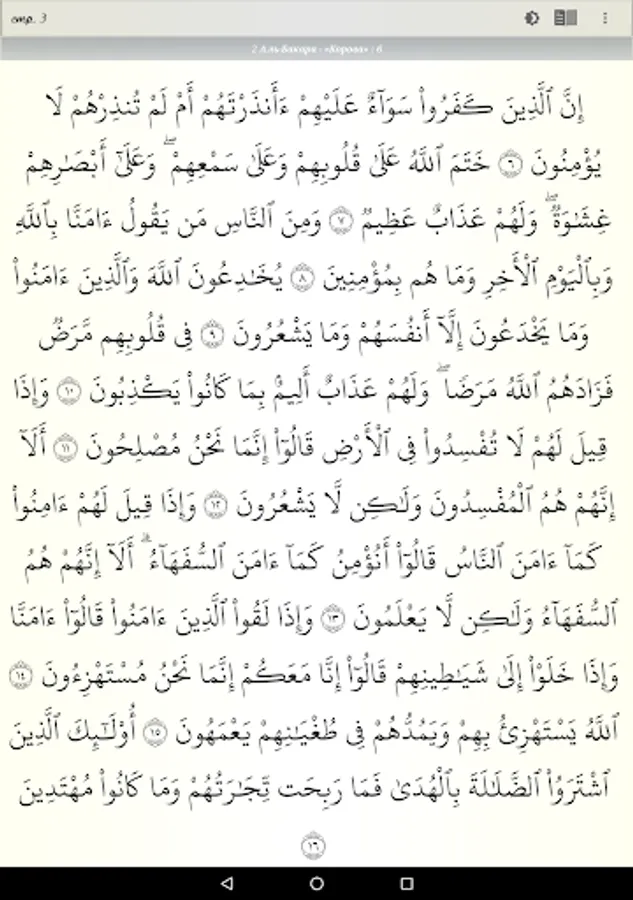 стр. 3
2 Аль-Бакара - «Корова» | 6
إِنَّ ٱلَّذِينَ كَفَرُوا۟ سَوَآءٌ عَلَيْهِمْ ءَأَنذَرْتَهُمْ أَمْ لَمْ تُنذِرْهُمْ لَا
يُؤْمِنُونَ ٦ خَتَمَ ٱللَّهُ عَلَىٰ قُلُوبِهِمْ وَعَلَىٰ سَمْعِهِمْ ۖ وَعَلَىٰٓ أَبْصَـٰرِهِمْ
غِشَـٰوَةٌ ۖ وَلَهُمْ عَذَابٌ عَظِيمٌ ٧ وَمِنَ ٱلنَّاسِ مَن يَقُولُ ءَامَنَّا بِٱللَّهِ
وَبِٱلْيَوْمِ ٱلْأَخِرِ وَمَا هُم بِمُؤْمِنِينَ ٨ يُخَـٰدِعُونَ ٱللَّهَ وَٱلَّذِينَ ءَامَنُوا۟
وَمَا يَخْدَعُونَ إِلَّآ أَنفُسَهُمْ وَمَا يَشْعُرُونَ ٩ فِى قُلُوبِهِم مَّرَضٌ
فَزَادَهُمُ ٱللَّهُ مَرَضًا ۖ وَلَهُمْ عَذَابٌ أَلِيمٌۢ بِمَا كَانُوا۟ يَكْذِبُونَ ١٠ وَإِذَا
قِيلَ لَهُمْ لَا تُفْسِدُوا۟ فِى ٱلْأَرْضِ قَالُوٓا۟ إِنَّمَا نَحْنُ مُصْلِحُونَ ١١ أَلَآ
إِنَّهُمْ هُمُ ٱلْمُفْسِدُونَ وَلَـٰكِن لَّا يَشْعُرُونَ ١٢ وَإِذَا قِيلَ لَهُمْ ءَامِنُوا۟
كَمَآ ءَامَنَ ٱلنَّاسُ قَالُوٓا۟ أَنُؤْمِنُ كَمَآ ءَامَنَ ٱلسُّفَهَآءُ ۗ أَلَآ إِنَّهُمْ هُمُ
ٱلسُّفَهَآءُ وَلَـٰكِن لَّا يَعْلَمُونَ ١٣ وَإِذَا لَقُوا۟ ٱلَّذِينَ ءَامَنُوا۟ قَالُوٓا۟ ءَامَنَّا
وَإِذَا خَلَوْا۟ إِلَىٰ شَيَـٰطِينِهِمْ قَالُوٓا۟ إِنَّا مَعَكُمْ إِنَّمَا نَحْنُ مُسْتَهْزِءُونَ ١٤
ٱللَّهُ يَسْتَهْزِئُ بِهِمْ وَيَمُدُّهُمْ فِى طُغْيَـٰنِهِمْ يَعْمَهُونَ ١٥ أُو۟لَـٰٓئِكَ ٱلَّذِينَ
ٱشْتَرَوُا۟ ٱلضَّلَـٰلَةَ بِٱلْهُدَىٰ فَمَا رَبِحَت تِّجَـٰرَتُهُمْ وَمَا كَانُوا۟ مُهْتَدِينَ
١٦